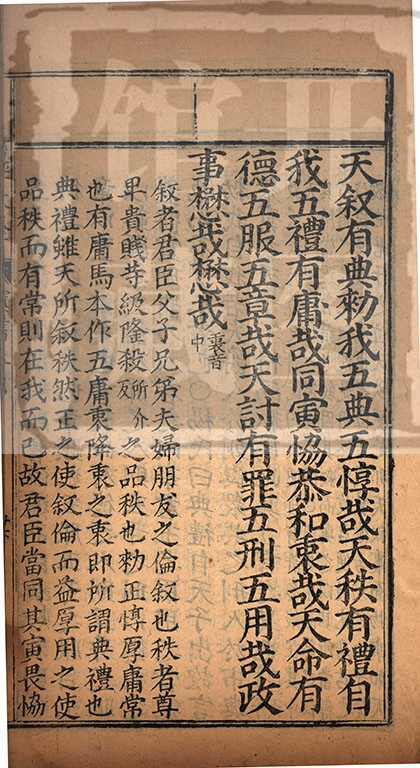 天叙有典勑我五典五惇哉天秩有禮自
我五禮有庸哉同寅恊恭和衷哉天命有
德五服五章哉天討有罪五刑五用哉政
事懋哉懋哉衷音中
叙者君臣父子兄弟夫婦朋友之倫叙也秩者尊
卑貴賤等級隆殺所介反之品秩也勑正惇厚庸常
也有庸馬本作五庸衷降衷之衷即所謂典禮也
典禮雖天所叙秩然正之使叙倫而益厚用之使
品秩而有常則在我而已故君臣當同其寅畏恊